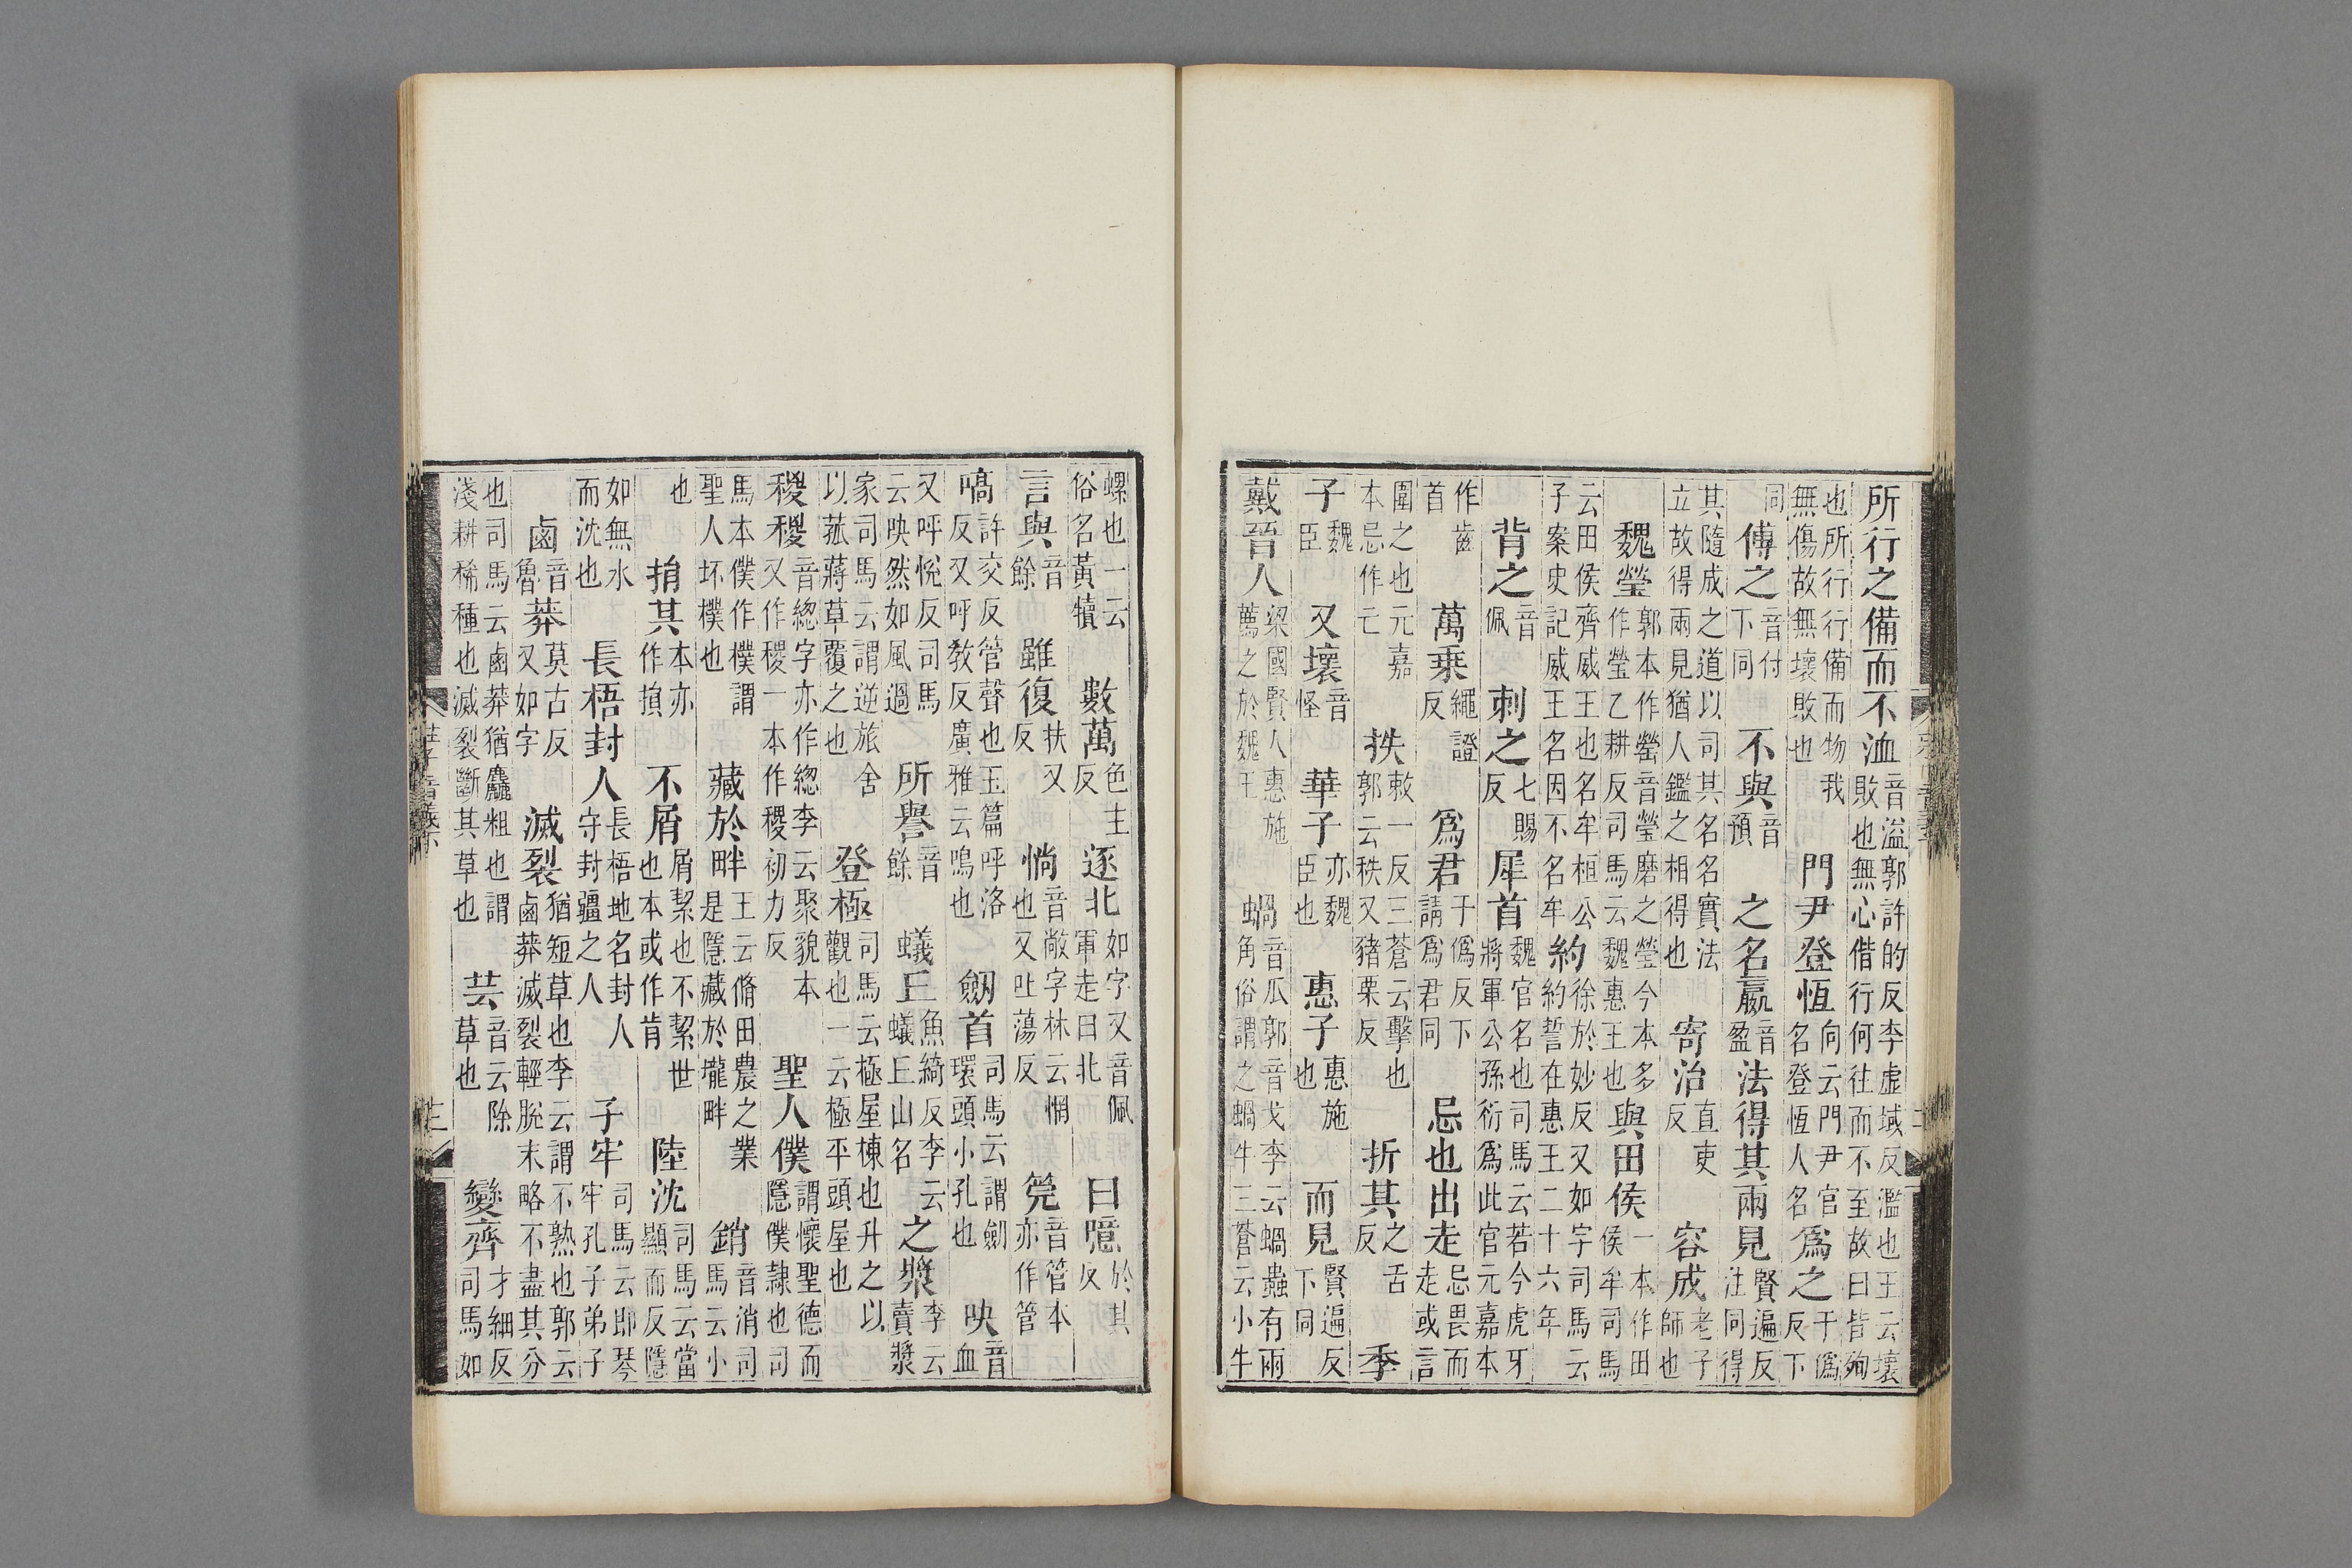 所行之備而不洫音溢郭許的反李虚域反濫也王云壞敗也無心偕行何往而不至故曰皆殉
也所行行備而物我無傷故無壞敗也門尹登恆向云門尹官名登恆人名爲之于僞反下
同傅之音付下同不與音預之名嬴音盈法得其兩見賢遍反注同得
其隨成之道以司其名名實法立故得兩見猶人鑑之相得也寄治直吏反容成老子師也
魏瑩郭本作罃音瑩磨之瑩今本多作瑩乙耕反司馬云魏惠王也與田侯一本作田侯牟司馬
云田侯齊威王也名牟桓公子案史記威王名因不名牟約徐於妙反又如字司馬云約誓在惠王二十六年
背之音佩刺之七賜反犀首魏官名也司馬云若今虎牙將軍公孫衍爲此官元嘉本
作齒首萬乗繩證反爲君于僞反下請爲君同忌也出走忌畏而走或言
圍之也元嘉本忌作亡抶敕一反三蒼云擊也郭云秩又豬栗反折其之舌反季
子魏臣又壞音怪華子亦魏臣也惠子惠施也而見賢遍反下同
戴晉人梁國賢人惠施薦之於魏王蝸音瓜郭音戈李云蝸蟲有兩角俗謂之蝸牛三蒼云小牛
螺也一云俗名黃犢數萬色主反逐北如字又音佩軍走曰北曰噫於其反
言與音餘雖復扶又反惝音敞字林云惘也又吐蕩反筦音管本亦作管
嗃許交反管聲也玉篇呼洛反又呼敎反廣雅云鳴也劒首司馬云謂劒環頭小孔也吷音血
又呼悅反司馬云吷然如風過所譽音餘蟻丘魚綺反李云蟻丘山名之漿李云賣漿
家司馬云謂逆旅舍以菰蔣草覆之也登極司馬云極屋棟也升之以觀也一云極平頭屋也
稯稯音緫字亦作緫李云聚貌本又作稷一本作稷初力反聖人僕謂懷聖德而隱僕隷也司
馬本僕作樸謂聖人坏樸也藏於畔王云脩田農之業是隱藏於壠畔銷音消司馬云小
也捐其本亦作損不屑屑絜也不絜世也本或作肯陸沈司馬云當顯而反隱
如無水而沈也長梧封人長梧地名封人守封疆之人子牢司馬云即琴牢孔子弟子
鹵音魯莽莫古反又如字滅裂猶短草也李云謂不熟也郭云鹵莽滅裂輕脫末略不盡其分
也司馬云鹵莽猶麤粗也謂淺耕稀種也滅裂斷其草也芸音云除草也變齊才細反司馬如